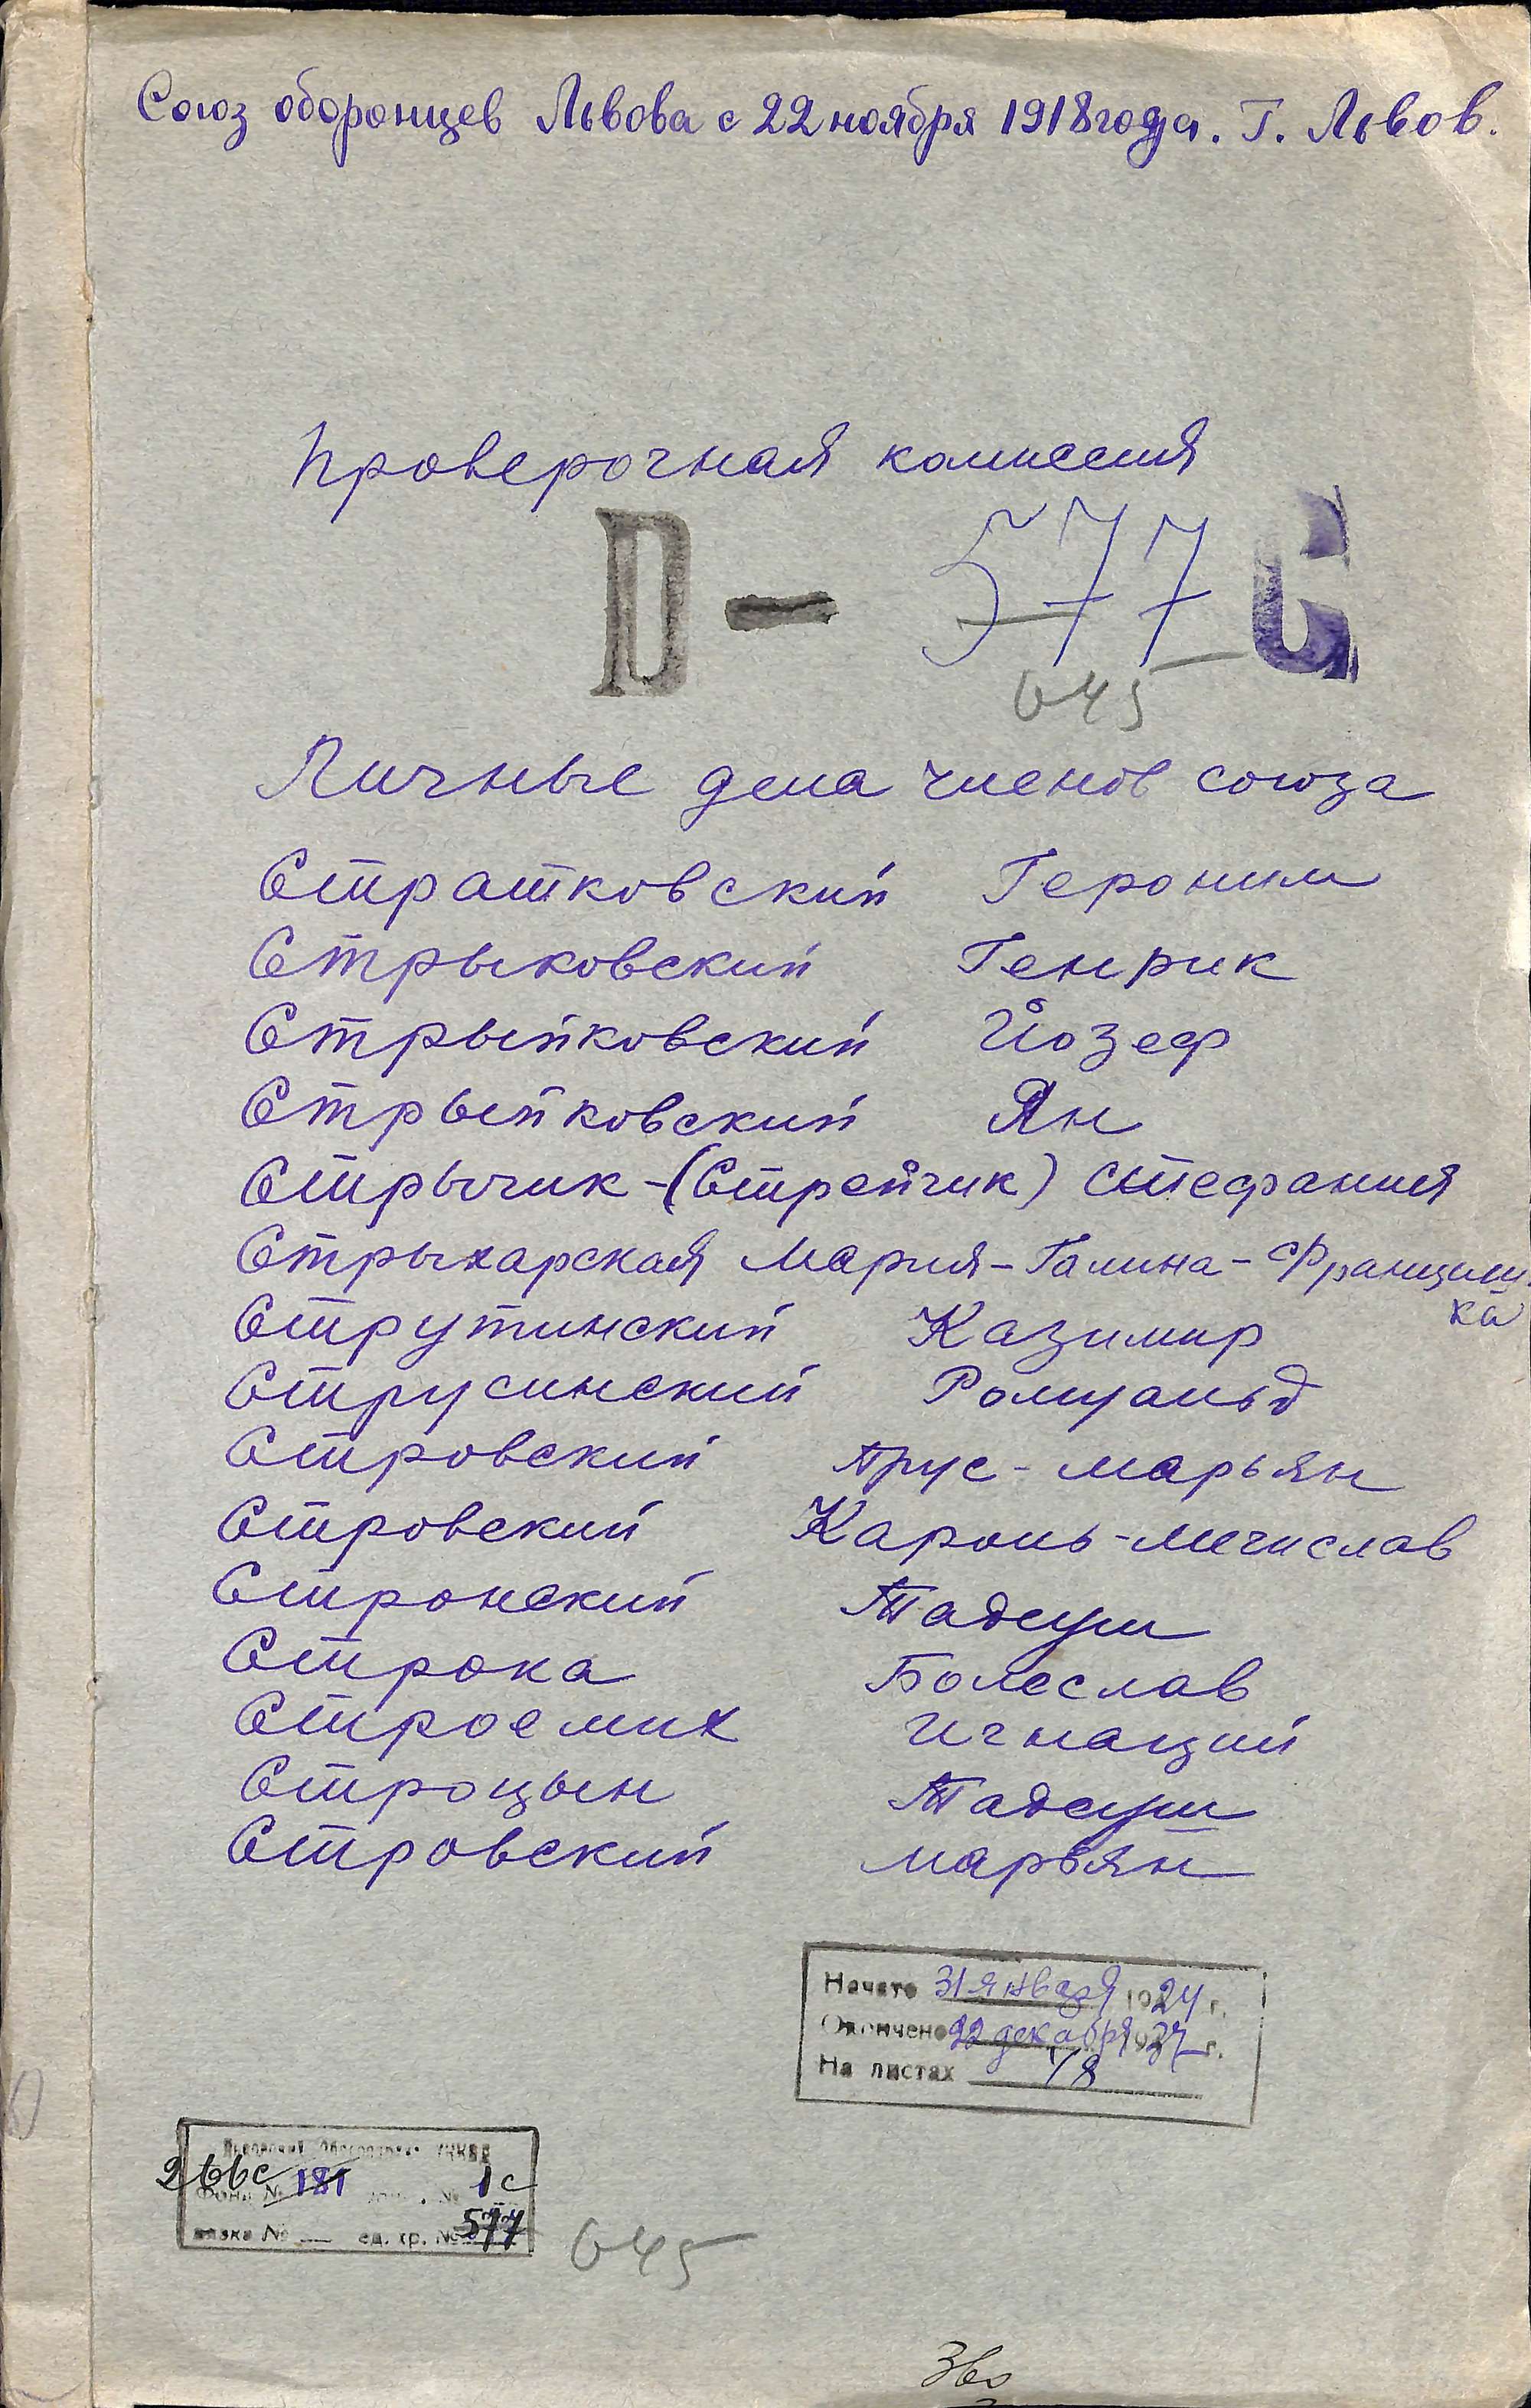 Союз оборонцев Львова с 22 ноября 1918 года. Г. Львов.
Проверочная комиссия
D – 577 G
645
Личные дела членов союза
Страшковский Героним
Стрыковский Генрик
Стрыйковский Йозеф
Стрыйковский Ян
Стрычик-(Стрейчик) Стефания
Стрыхарская Мария-Галина-Францишка
Струтинский Казимир
Струсинский Ромуальд
Стровский Трус-Марьян
Стровский Кароль-Мечислав
Стронский Тадеуш
Строка Болеслав
Строемих Игнаций
Строцын Тадеуш
Стровский Марьян
Начато 31 января 1924 г.
Окончено 22 декабря 1937 г.
На листах 78
266с 181 1с
Фонд №
вязка № — ед. хр. № 577
645